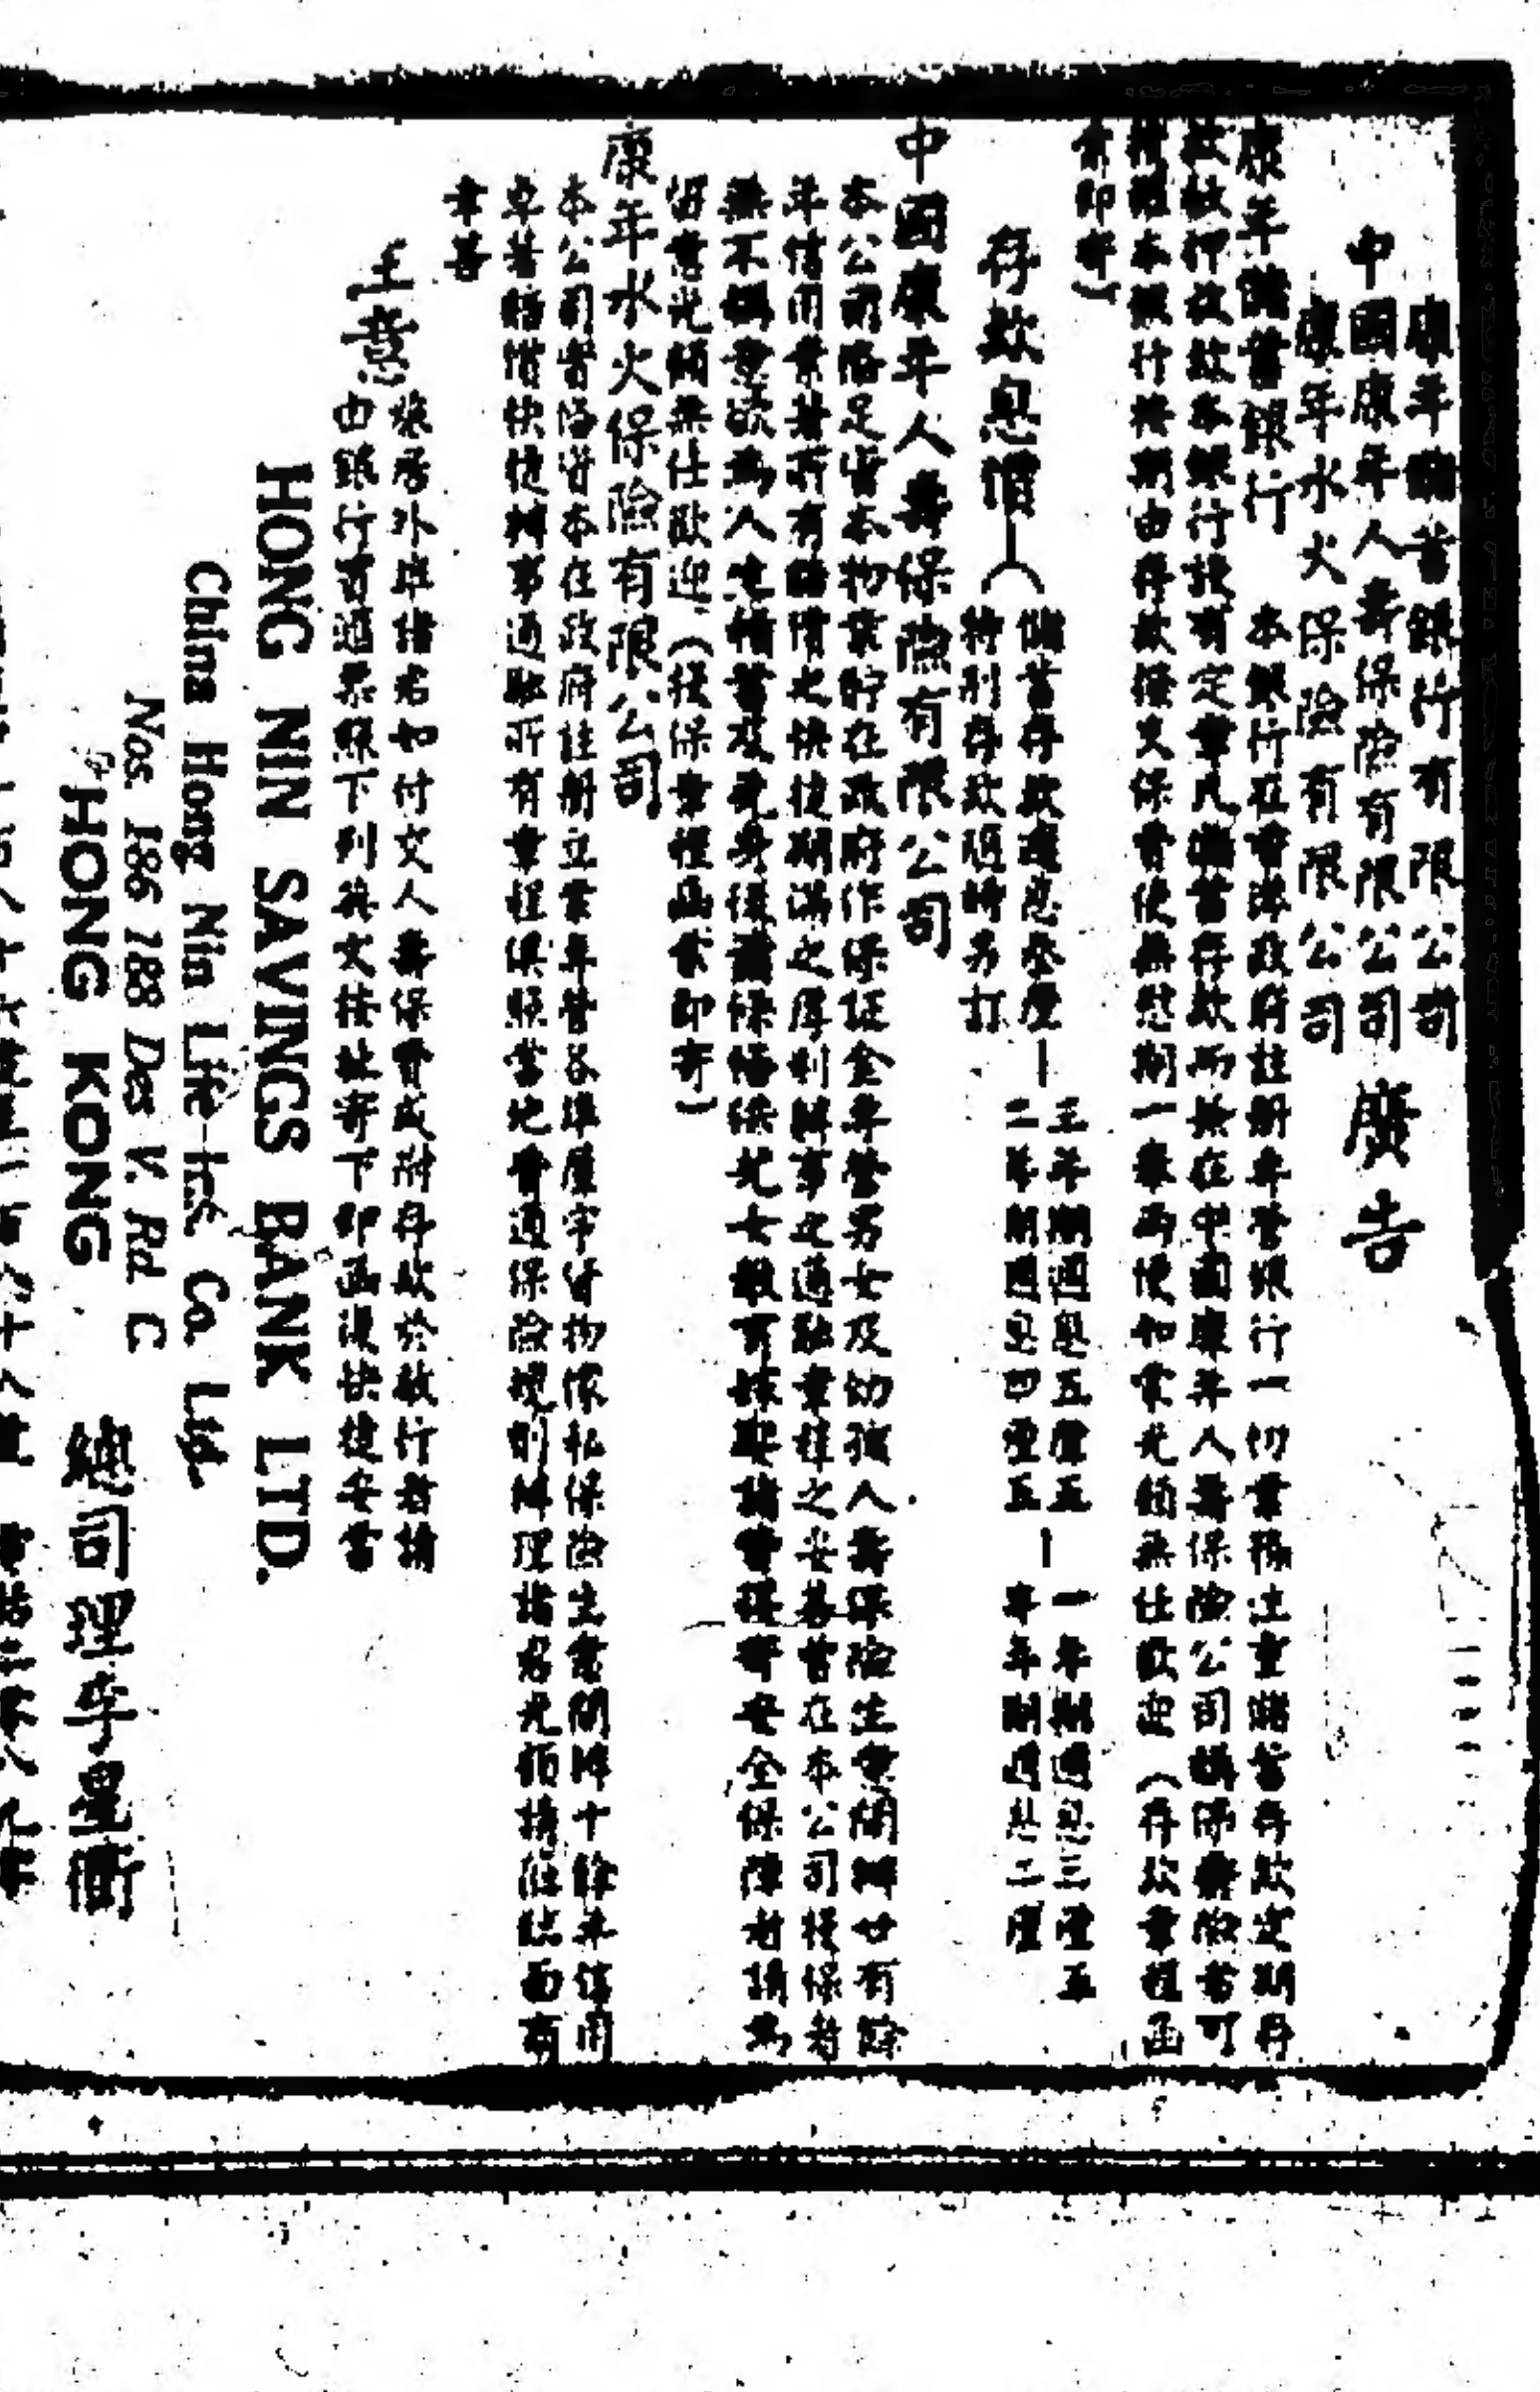 康年儲蓄銀行有限公司
中國康年人壽保險有限公司 廣告
康年水火保險有限公司
康年儲蓄銀行 本銀行在香港政府註冊專營銀行一切業務注重儲蓄存款定期存
款放押放款本銀行訂有定章凡儲蓄存款而兼在中國康年人壽保險公司購落壽險者可
特離本銀行按期由存款撥交保費使無愆期一舉兩便如蒙光顧無任歡迎（存款章程函
索即寄）
存款息價
儲蓄存款週息叁厘
特別存款隨時另訂
三年期週息五厘五
二年期週息四厘五
一年期週息三厘五
半年期週息二厘
中國康年人壽保險有限公司
本公司備足資本物業貯在政府作保証金專營男女及幼孩人壽保險生意開辦廿有餘
年信用素著所有賠償之快捷期滿之厚利辦事之通融章程之妥善曾在本公司投保者
無不稱意欲為人生儲蓄及死身後兼保婚保兒女教育嫁娶諸費獲得安全保障者請為
留意光顧無任歡迎（投保章程函索即寄）
康年水火保險有限公司
本公司資備資本在政府註冊立案專營各埠屋宇貨物傢私保險生意開辦十餘年信用
卓著賠償快捷辦事通融所有章程俱照當地普通保險規則辦理諸君光顧請假臨面商
幸甚
注意
旅居外埠諸君如付交人壽保費或附存款於敝行者請
由銀行滙票照下列英文按址寄下即函復快捷妥當
HONG NIN SAVINGS BANK LTD.
China Hong Nin Life Ins. Co. Ltd.
Nos. 186 188 Des V. Rd. C.
HONG KONG
總司理李星衢